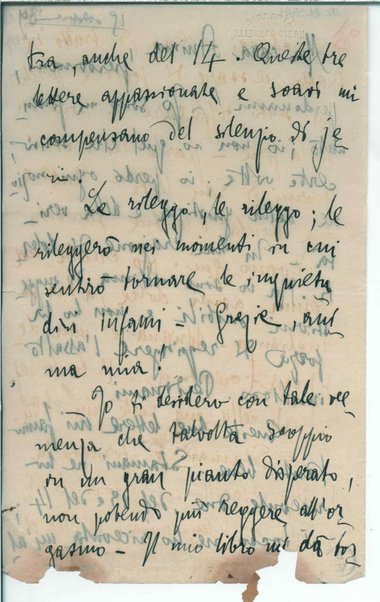 tra, anche del 14. Queste tre
lettere appassionate e soavi mi
compensano del silenzio di je
ri.
Le rileggo, le rileggo; le
rileggerò nei momenti in cui
sentirò tornare le inquietu
dini infami – Grazie ani
ma mia!
Io ti desidero con tale vee
menza che talvolta scoppio
in un gran pianto disperato,
non potendo più reggere all'or
gasmo – Il mio libro mi dà tor